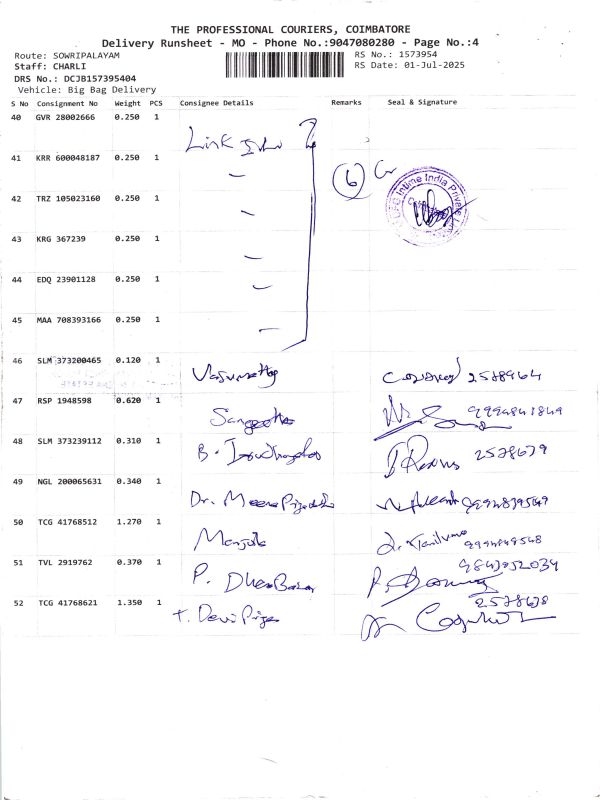 THE PROFESSIONAL COURIERS, COIMBATORE
Delivery Runsheet - MO - Phone No.:9047080280 - Page No.:4
Route: SOWRIPALAYAM
Staff: CHARLI
DRS No.: DCJB157395404
Vehicle: Big Bag Delivery
RS No.: 1573954
RS Date: 01-Jul-2025
S No Consignment No Weight PCS Consignee Details Remarks Seal & Signature
40 GVR 28002666 0.250 1
Link
41 KRR 600048187 0.250 1
6
Intime India Private
42 TRZ 105023160 0.250 1
43 KRG 367239 0.250 1
44 EDQ 23901128 0.250 1
45 MAA 708393166 0.250 1
46 SLM 373200465 0.120 1
Vasumathy 2578964
47 RSP 1948598 0.620 1
Sangeetha 9994841849
48 SLM 373239112 0.310 1
B. 2578679
49 NGL 200065631 0.340 1
Dr. Meena 9994839549
50 TCG 41768512 1.270 1
Manjula 9994849548
51 TVL 2919762 0.370 1
P. 9843052034
52 TCG 41768621 1.350 1
T. Devi Priya 2578678